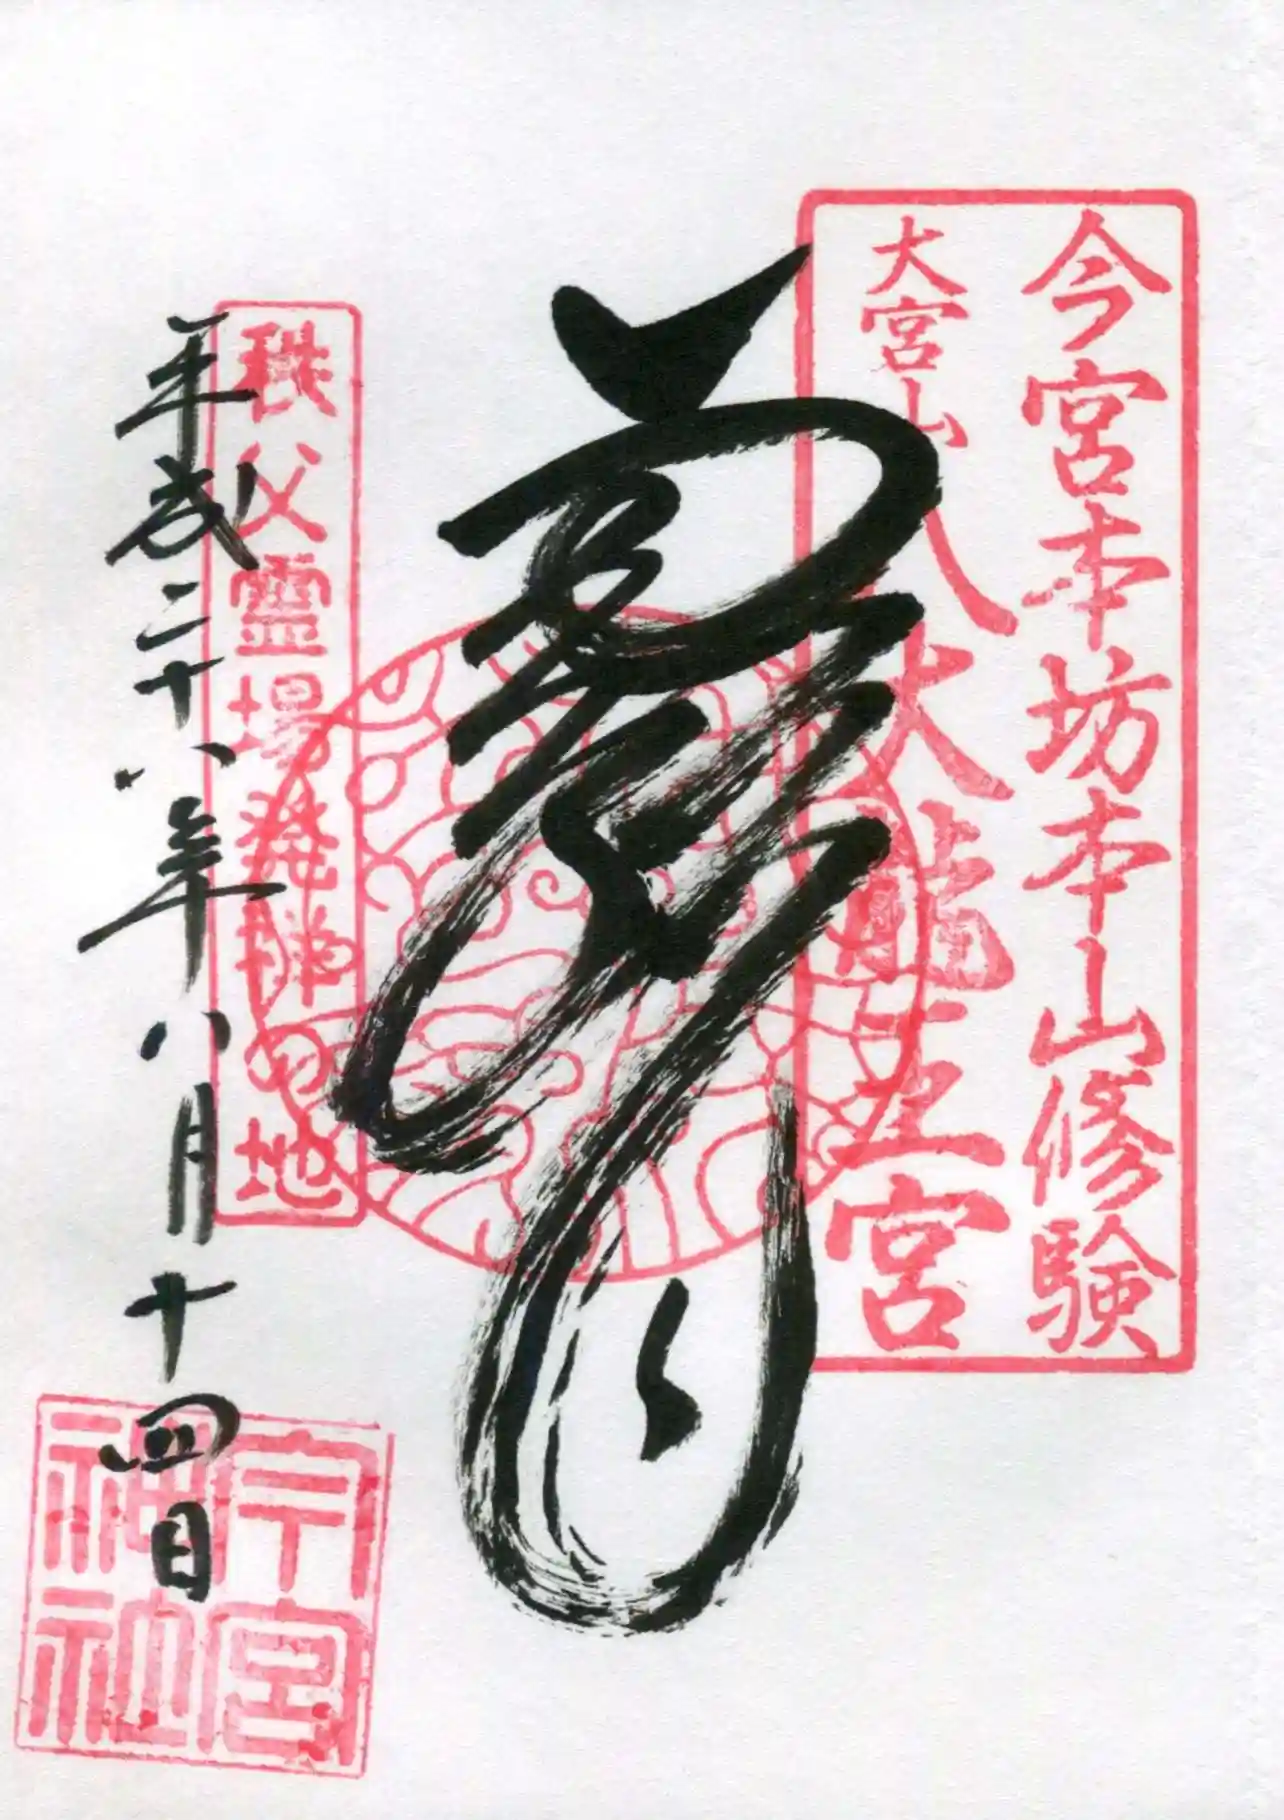 今宮本坊本山修験
大宮山
八大龍王宮
龍
秩父霊場発祥の地
平成二十八年八月十四日
今宮
神社